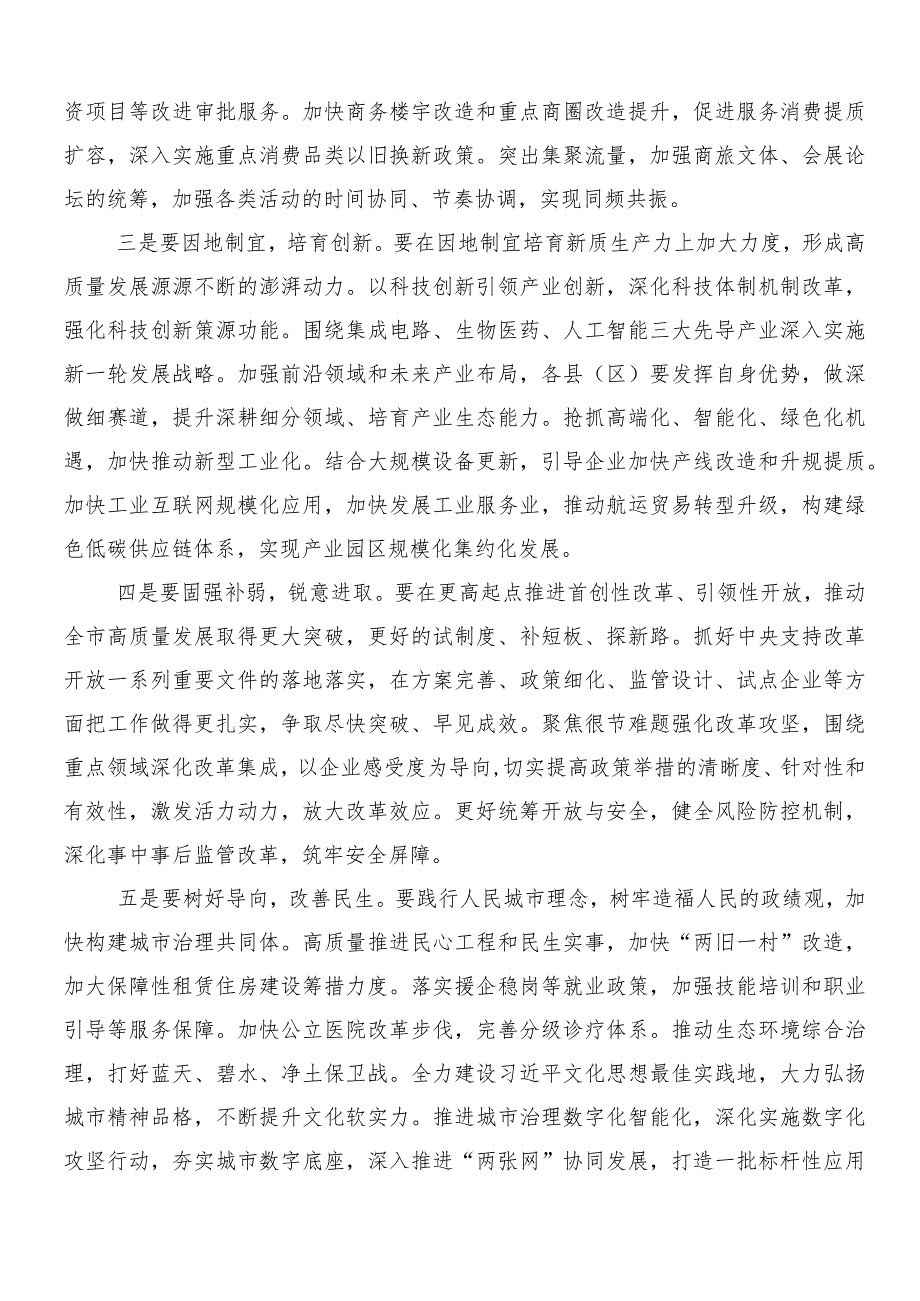 资项目等改进审批服务。加快商务楼宇改造和重点商圈改造提升，促进服务消费提质
扩容，深入实施重点消费品类以旧换新政策。突出集聚流量，加强商旅文体、会展论
坛的统筹，加强各类活动的时间协同、节奏协调，实现同频共振。
三是要因地制宜，培育创新。要在因地制宜培育新质生产力上加大力度，形成高
质量发展源源不断的澎湃动力。以科技创新引领产业创新，深化科技体制机制改革，
强化科技创新策源功能。围绕集成电路、生物医药、人工智能三大先导产业深入实施
新一轮发展战略。加强前沿领域和未来产业布局，各县（区）要发挥自身优势，做深
做细赛道，提升深耕细分领域、培育产业生态能力。抢抓高端化、智能化、绿色化机
遇，加快推动新型工业化。结合大规模设备更新，引导企业加快产线改造和升规提质。
加快工业互联网规模化应用，加快发展工业服务业，推动航运贸易转型升级，构建绿
色低碳供应链体系，实现产业园区规模化集约化发展。
四是要固强补弱，锐意进取。要在更高起点推进首创性改革、引领性开放，推动
全市高质量发展取得更大突破，更好的试制度、补短板、探新路。抓好中央支持改革
开放一系列重要文件的落地落实，在方案完善、政策细化、监管设计、试点企业等方
面把工作做得更扎实，争取尽快突破、早见成效。聚焦很节难题强化改革攻坚，围绕
重点领域深化改革集成，以企业感受度为导向,切实提高政策举措的清晰度、针对性和
有效性，激发活力动力，放大改革效应。更好统筹开放与安全，健全风险防控机制，
深化事中事后监管改革，筑牢安全屏障。
五是要树好导向，改善民生。要践行人民城市理念，树牢造福人民的政绩观，加
快构建城市治理共同体。高质量推进民心工程和民生实事，加快“两旧一村”改造，
加大保障性租赁住房建设筹措力度。落实援企稳岗等就业政策，加强技能培训和职业
引导等服务保障。加快公立医院改革步伐，完善分级诊疗体系。推动生态环境综合治
理，打好蓝天、碧水、净土保卫战。全力建设习近平文化思想最佳实践地，大力弘扬
城市精神品格，不断提升文化软实力。推进城市治理数字化智能化，深化实施数字化
攻坚行动，夯实城市数字底座，深入推进“两张网”协同发展，打造一批标杆性应用